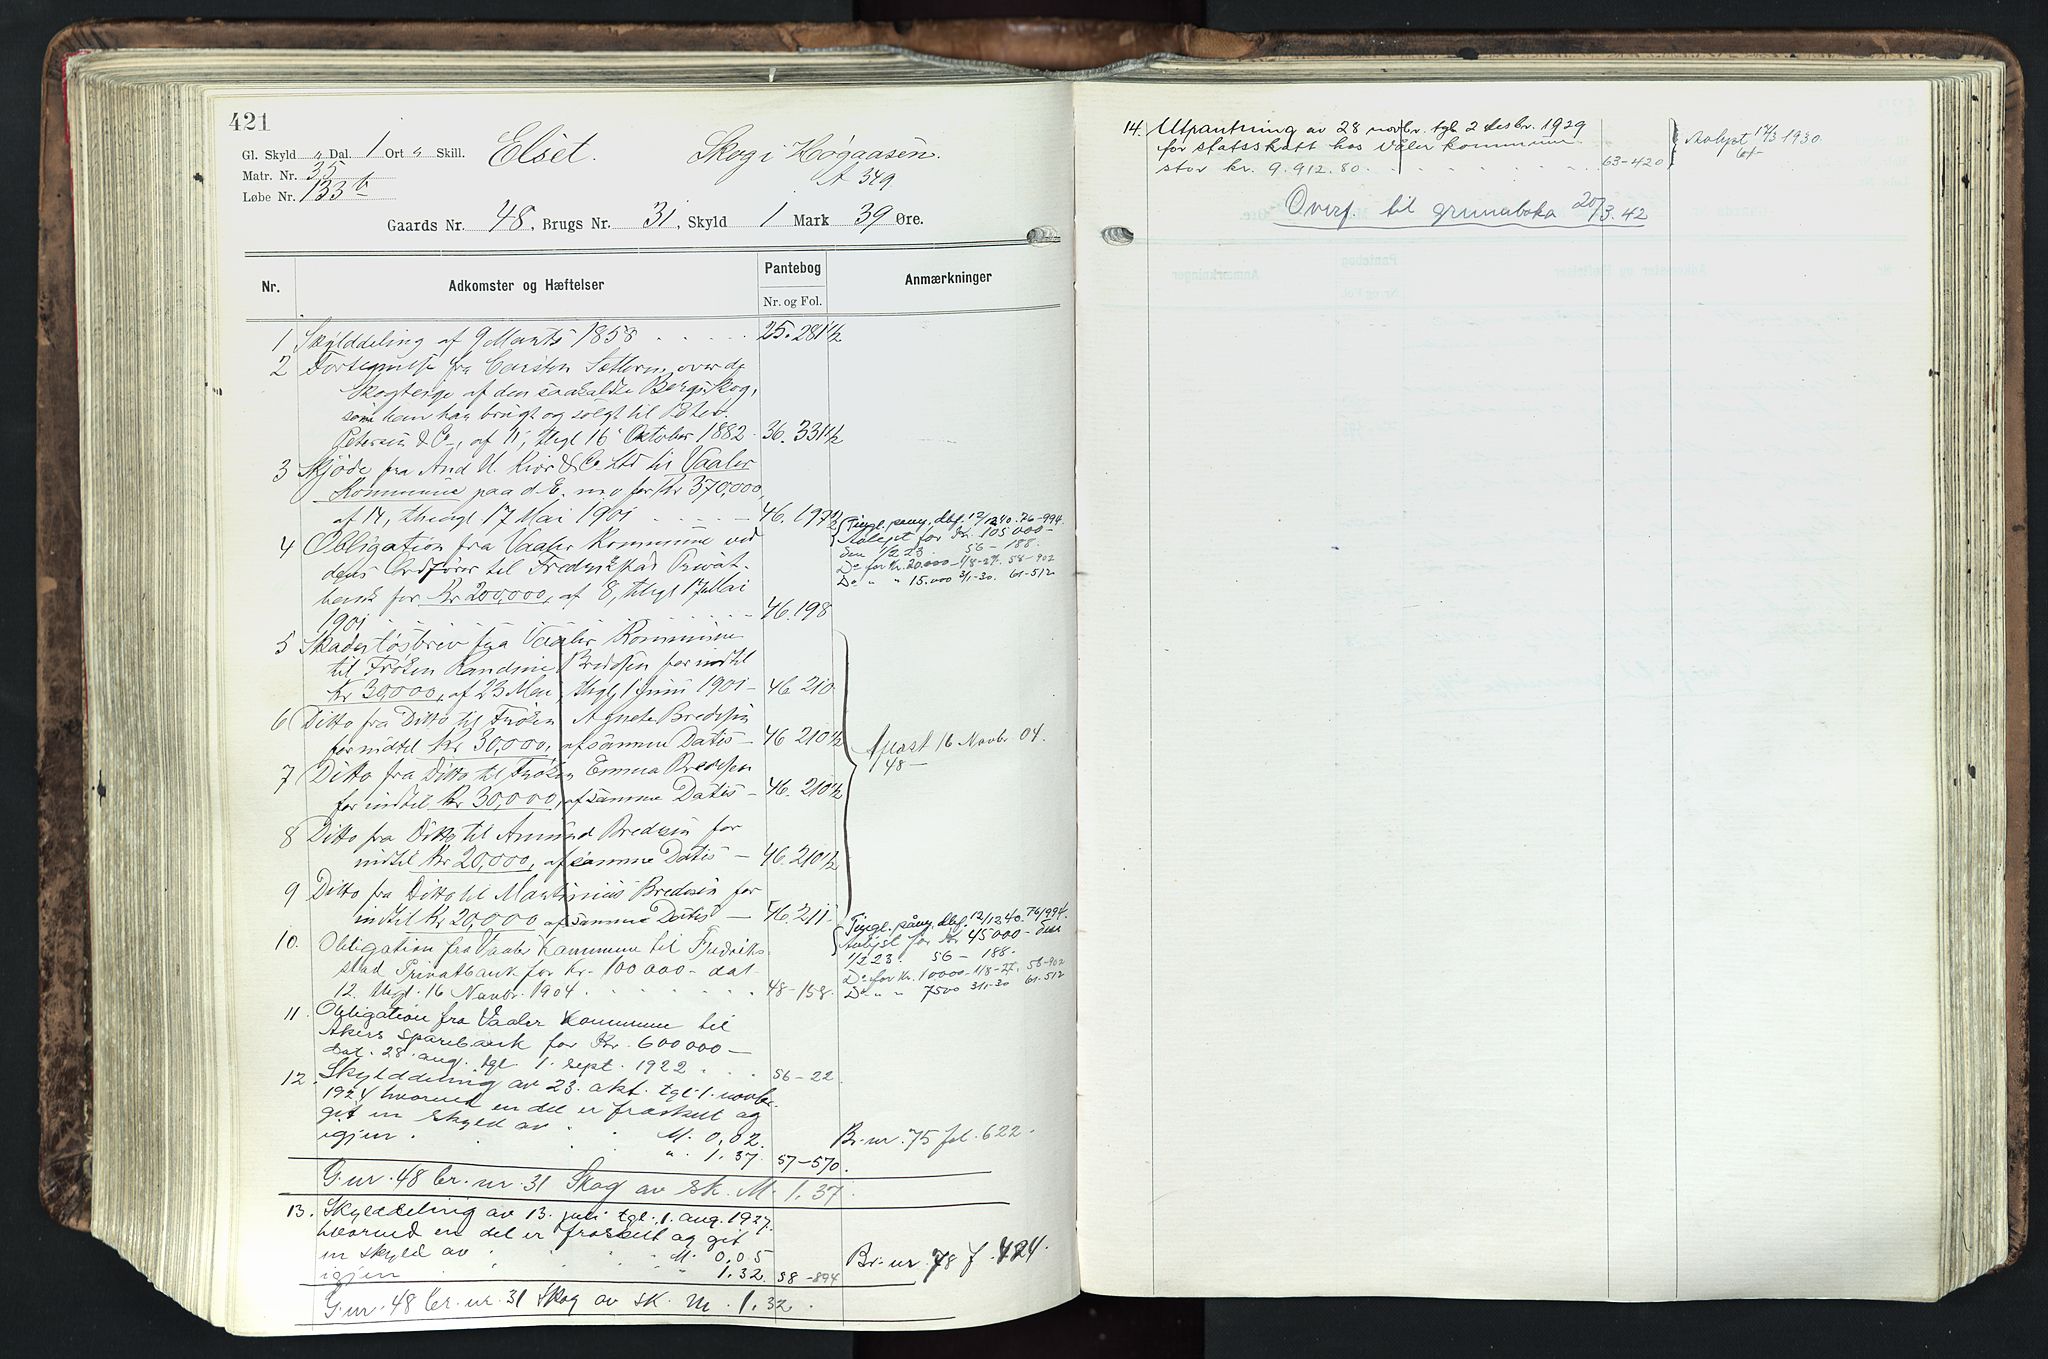 421
Gl. Skyld " Dal. 1 Ort " Skill. Elset. Skog i Høgaasen.
Matr. Nr. 35 A 349
Løbe Nr. 133 b
Gaards Nr. 48, Brugs Nr. 31, Skyld 1 Mark 39 Øre.
Nr. Adkomster og Hæftelser Pantebog Anmærkninger
Nr. og Fol.
1 Skylddeling af 9 Marts 1858 . . . . . 25. 281½
2 Fortegnelse fra Carsten over de
Skogteige af den saakaldte Bergskog,
som han har brugt og solgt til Peter
Petersen & Co, af 11, thgl 16 Oktober 1882 36. 331½
3 Skjøde fra And H. Kiær & Co. Ltd til Vaaler
Kommune paa d. E. m. o for Kr 370,000,
af 14, thingl 17 Mai 1901 . . . . 46. 197½
4 Obligation fra Vaaler Kommune ved
dens Ordfører til Fredrikstad Privat-
bank for Kr 200,000, af 8, thgl 17 Mai
1901 . . . . . . . 46. 198
Tingl. påny, dbf. 12/12 40. 76-994.
Avlyst for Kr. 105 000 -
den 1/2 23. 56 - 188.
Do for Kr. 20.000 - 1/8-27. 58-902
Do " " 15.000 3/1-30. 61-512
5 Skadesløsbrev fra Vaaler Kommune
til Frøken Randine Bredesen for indtil
Kr 30,000, af 23 Mai, thgl 1 Juni 1901 - 46. 210
6 Ditto fra Ditto til Frøken Agnete Bredesen
for indtil Kr 30,000, af samme Datis - 46. 210½
7 Ditto fra Ditto til Frøken Emma Bredesen
for indtil Kr 30,000, af samme Datis - 46. 210½
8 Ditto fra Ditto til Amund Bredesen for
indtil Kr 20,000, af samme Datis - 46. 210½
9 Ditto fra Ditto til Martinius Bredesen for
indtil Kr 20,000 af samme Datis - 46. 211.
Aflæst 16 Novbr 04.
48 -
10. Obligation fra Vaaler Kommune til Fredrik-
stad Privatbank for Kr. 100 000 - dat
12. thgl. 16 Novbr. 1904 . . . . . . . 48-158.
Tingl. påny, dbf. 12/12 40. 76/994.
Avlyst for Kr 45000 - den
1/2 23. 56 - 188.
Do for Kr. 10000 - 1/8-27. 58-902
Do " " 7500 3/1-30 61-512
11. Obligation fra Vaaler Kommune til
Akers Sparebank for Kr. 600 000 -
dat. 28. aug. tgl. 1. sept. 1922 . . . 56-22.
12. Skylddeling av 23. okt. tgl. 1. novbr.
1924 hvorved en del er fraskilt og
git en skyld av . . M. 0,02. Br.nr. 75 fol. 622.
igjen . . . . " 1.37. 57-570.
G.nr. 48 br.nr. 31 Skog av sk. M. 1,37.
13. Skylddeling av 13. juli tgl. 1. aug. 1927.
hvorved en del er fraskilt og git
en skyld av . . . M. 0,05 Br.nr. 78 f. 424.
igjen . . . " 1,32. 58-894
G.nr. 48 br.nr. 31 Skog av sk. M. 1,32.
14. Utpantning av 28 novbr. tgl 2 desbr. 1929
for statsskatt hos Våler kommune
stor kr. 9.912.80. . . . . . . 63-420 Avlyst 12/3 1930.
61-
Overf. til grunnboka 20/3.42